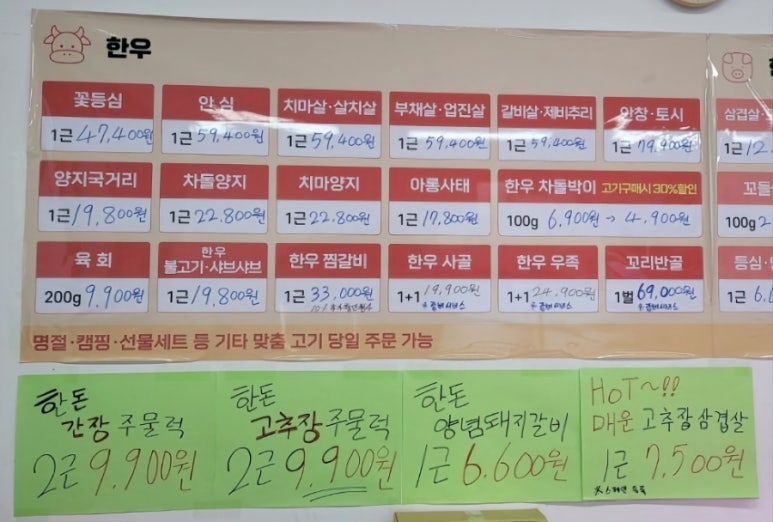 한우
꽃등심
1근 47,400원
안심
1근 59,400원
치마살·살치살
1근 59,400원
부채살·업진살
1근 59,400원
갈비살·제비추리
1근 59,400원
안창·토시
1근 79,900원
양지국거리
1근 19,800원
차돌양지
1근 22,800원
치마양지
1근 22,800원
아롱사태
1근 17,800원
한우 차돌박이 고기구매시 30%할인
100g 6,900원 → 4,900원
육 회
200g 9,900원
한우
불고기·샤브샤브
1근 19,800원
한우 찜갈비
1근 33,000원
한우 사골
1+1 19,900원
한우 우족
1+1 24,900원
꼬리반골
1벌 69,000원
명절·캠핑·선물세트 등 기타 맞춤 고기 당일 주문 가능
삼겹살
1근 12
100g 2
등심
1근 6.6
한돈
간장 주물럭
2근 9.900원
한돈
고추장 주물럭
2근 9.900원
한돈
양념돼지갈비
1근 6.600원
HOT~!!
매운 고추장삼겹살
1근 7,500원